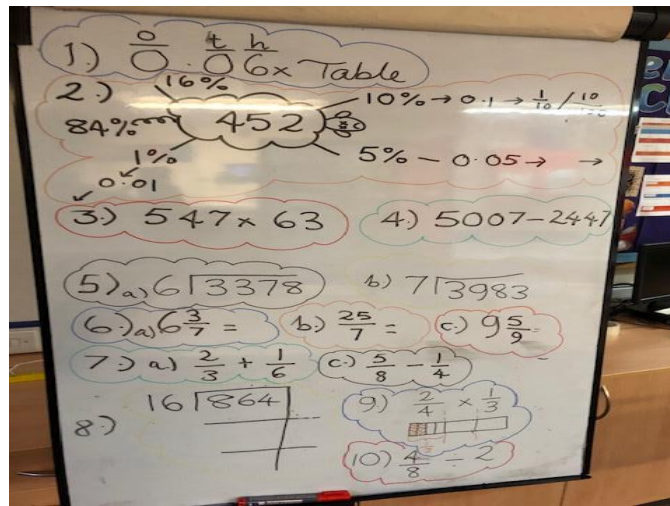 o t h
1.) 0.06x Table
2.) 16%
84% 452 10% → 0.1 → 1/10 / 10/100
1% 5% - 0.05 → →
0.01
3.) 547 x 63 4.) 5007-2447
5) a) 6⟌3378 b) 7⟌3983
6.) a) 6 3/7 = b.) 25/7 = c.) 9 5/9 =
7.) a) 2/3 + 1/6 c.) 5/8 - 1/4
8.) 16⟌864 9) 2/4 x 1/3
10) 4/8 ÷ 2